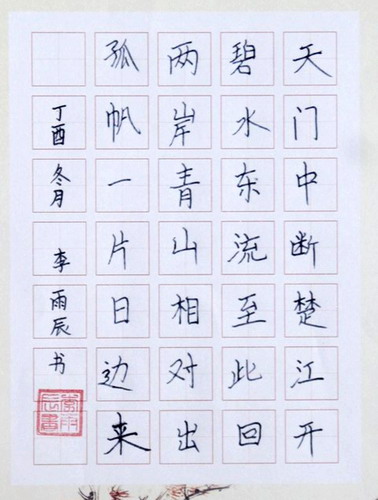 天门中断楚江开
碧水东流至此回
两岸青山相对出
孤帆一片日边来
丁酉冬月李雨辰书